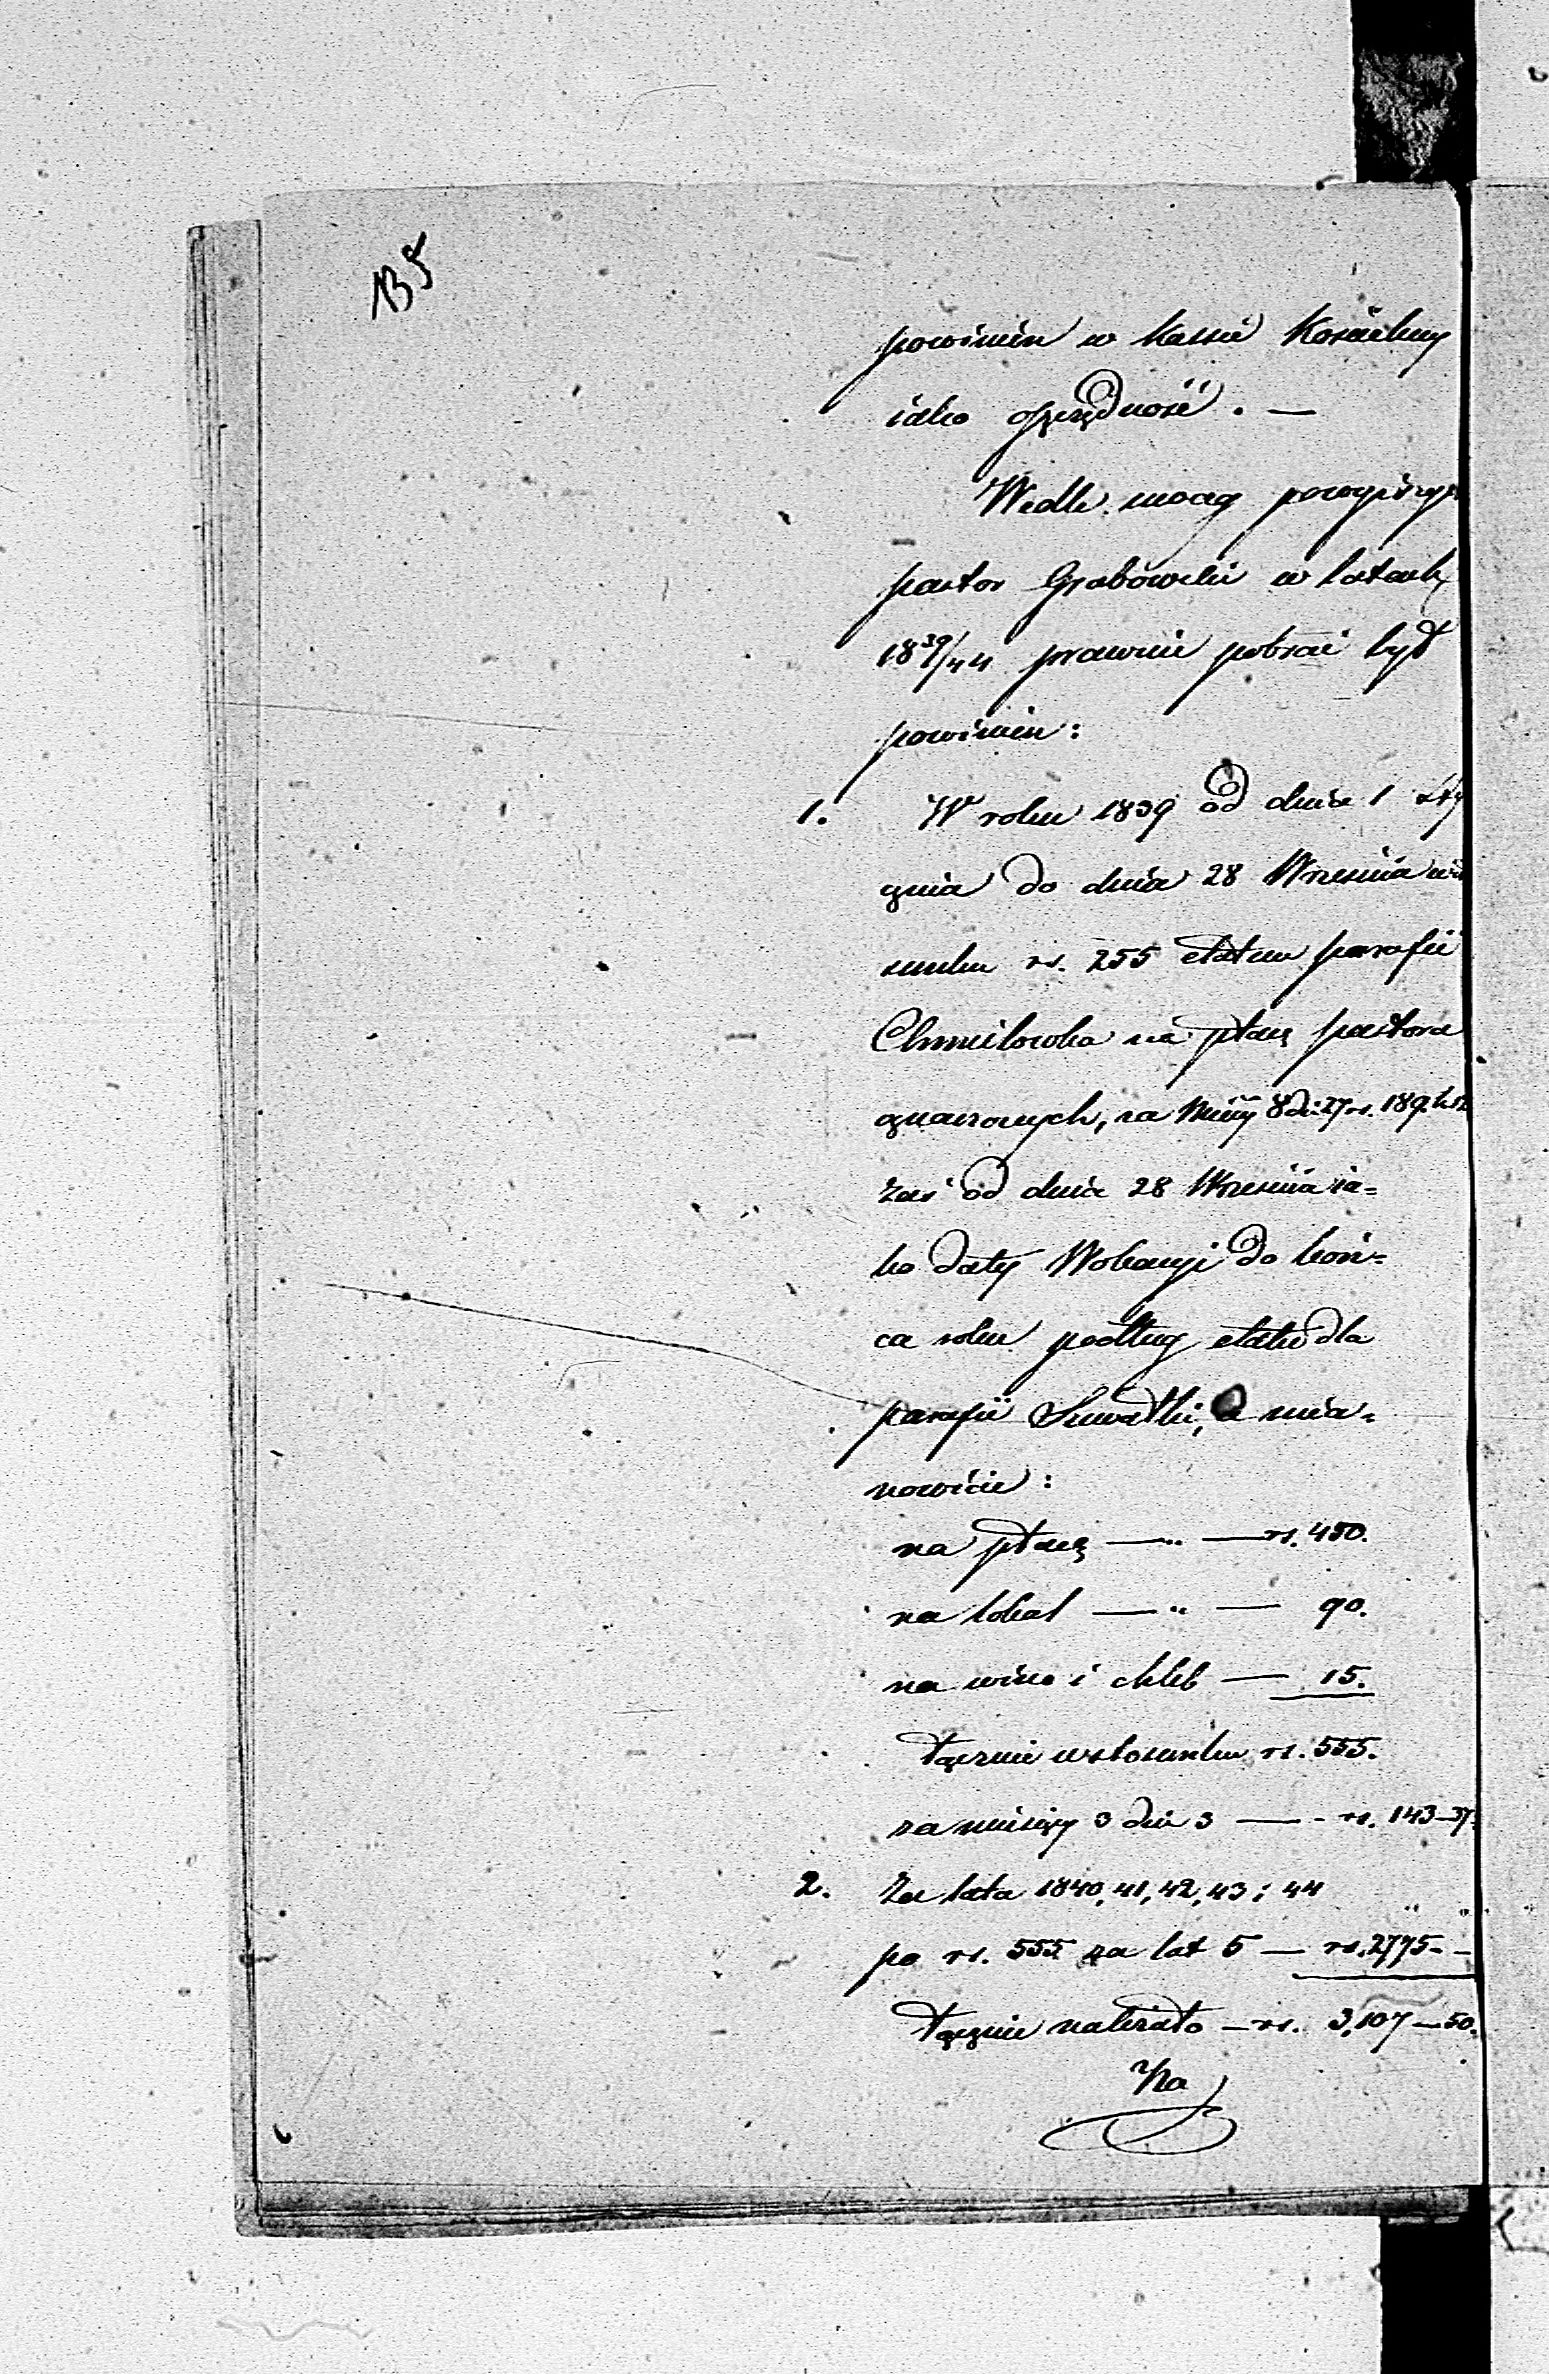 135
powinien w Kassie Kościelny
iako oszczędność. —
Wedle mocy powyższych
pastor Grabowski w latach
18 39/44 prawnie pobrać był
powinien:
1. W roku 1839 od dnia 1 Sty
cznia do dnia 28 Wrzesnia w sto
sunku rs. 255 etatem parafii
Chmielowka na płacę pastora
znaczonych, za Mcy 8 dni 27 rs. 189 k. 12
zaś od dnia 28 Wrzesnia ia=
ko daty Wokacyi do koń=
ca roku podług etatu dla
parafii Suwałki, a mia=
nowicie:
na płacę — " — rs. 450.
na lokal — " — 90.
na wino i chleb — 15.
łącznie w stosunku rs. 555.
za miesięcy 3 dni 3 — - rs. 143-37.
2. Za lata 1840, 41, 42, 43 i 44
po rs. 555 za lat 5 — rs. 2775. -
łącznie należało — rs. 3,107 — 50.
Na